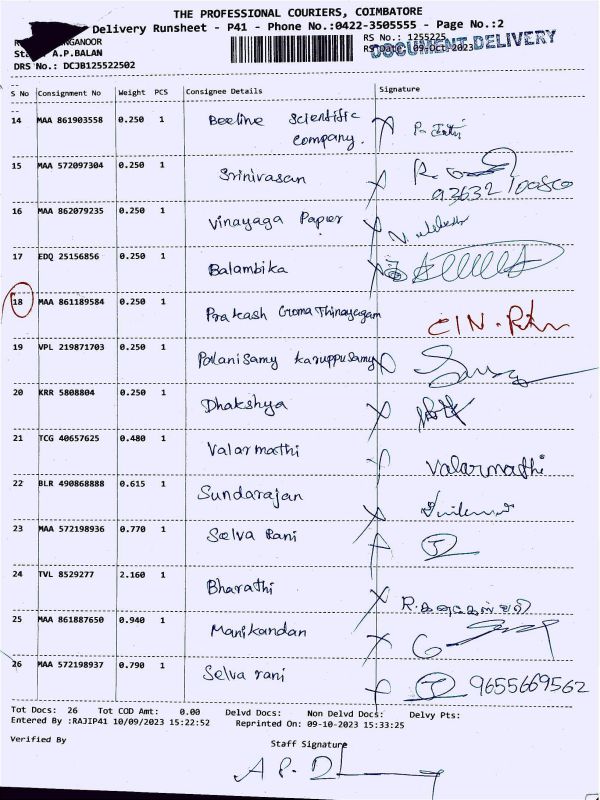 THE PROFESSIONAL COURIERS, COIMBATORE
Delivery Runsheet - P41 - Phone No.:0422-3505555 - Page No.:2
RS No.: 1255225
RS Date: 09-Oct-2023
DOCUMENT DELIVERY
A.P.BALAN
DRS No.: DCJB125522502
S No Consignment No Weight PCS Consignee Details Signature
14 MAA 861903558 0.250 1 Beeline Scientific
Company.
15 MAA 572097304 0.250 1 Srinivasan
93632
16 MAA 862079235 0.250 1 Vinayaga Paper
17 EDQ 25156856 0.250 1 Balambika
18 MAA 861189584 0.250 1 Prakash
19 VPL 219871703 0.250 1 Palanisamy Karuppusamy
20 KRR 5808804 0.250 1 Dhakshya
21 TCG 40657625 0.480 1 Valarmathi Valarmathi
22 BLR 490868888 0.615 1 Sundarajan
23 MAA 572198936 0.770 1 Selva Rani
24 TVL 8529277 2.160 1 Bharathi
25 MAA 861887650 0.940 1 Manikandan
26 MAA 572198937 0.790 1 Selva rani 9655669562
Tot Docs: 26 Tot COD Amt: 0.00 Delvd Docs: Non Delvd Docs: Delvy Pts:
Entered By :RAJIP41 10/09/2023 15:22:52 Reprinted On: 09-10-2023 15:33:25
Verified By
Staff Signature